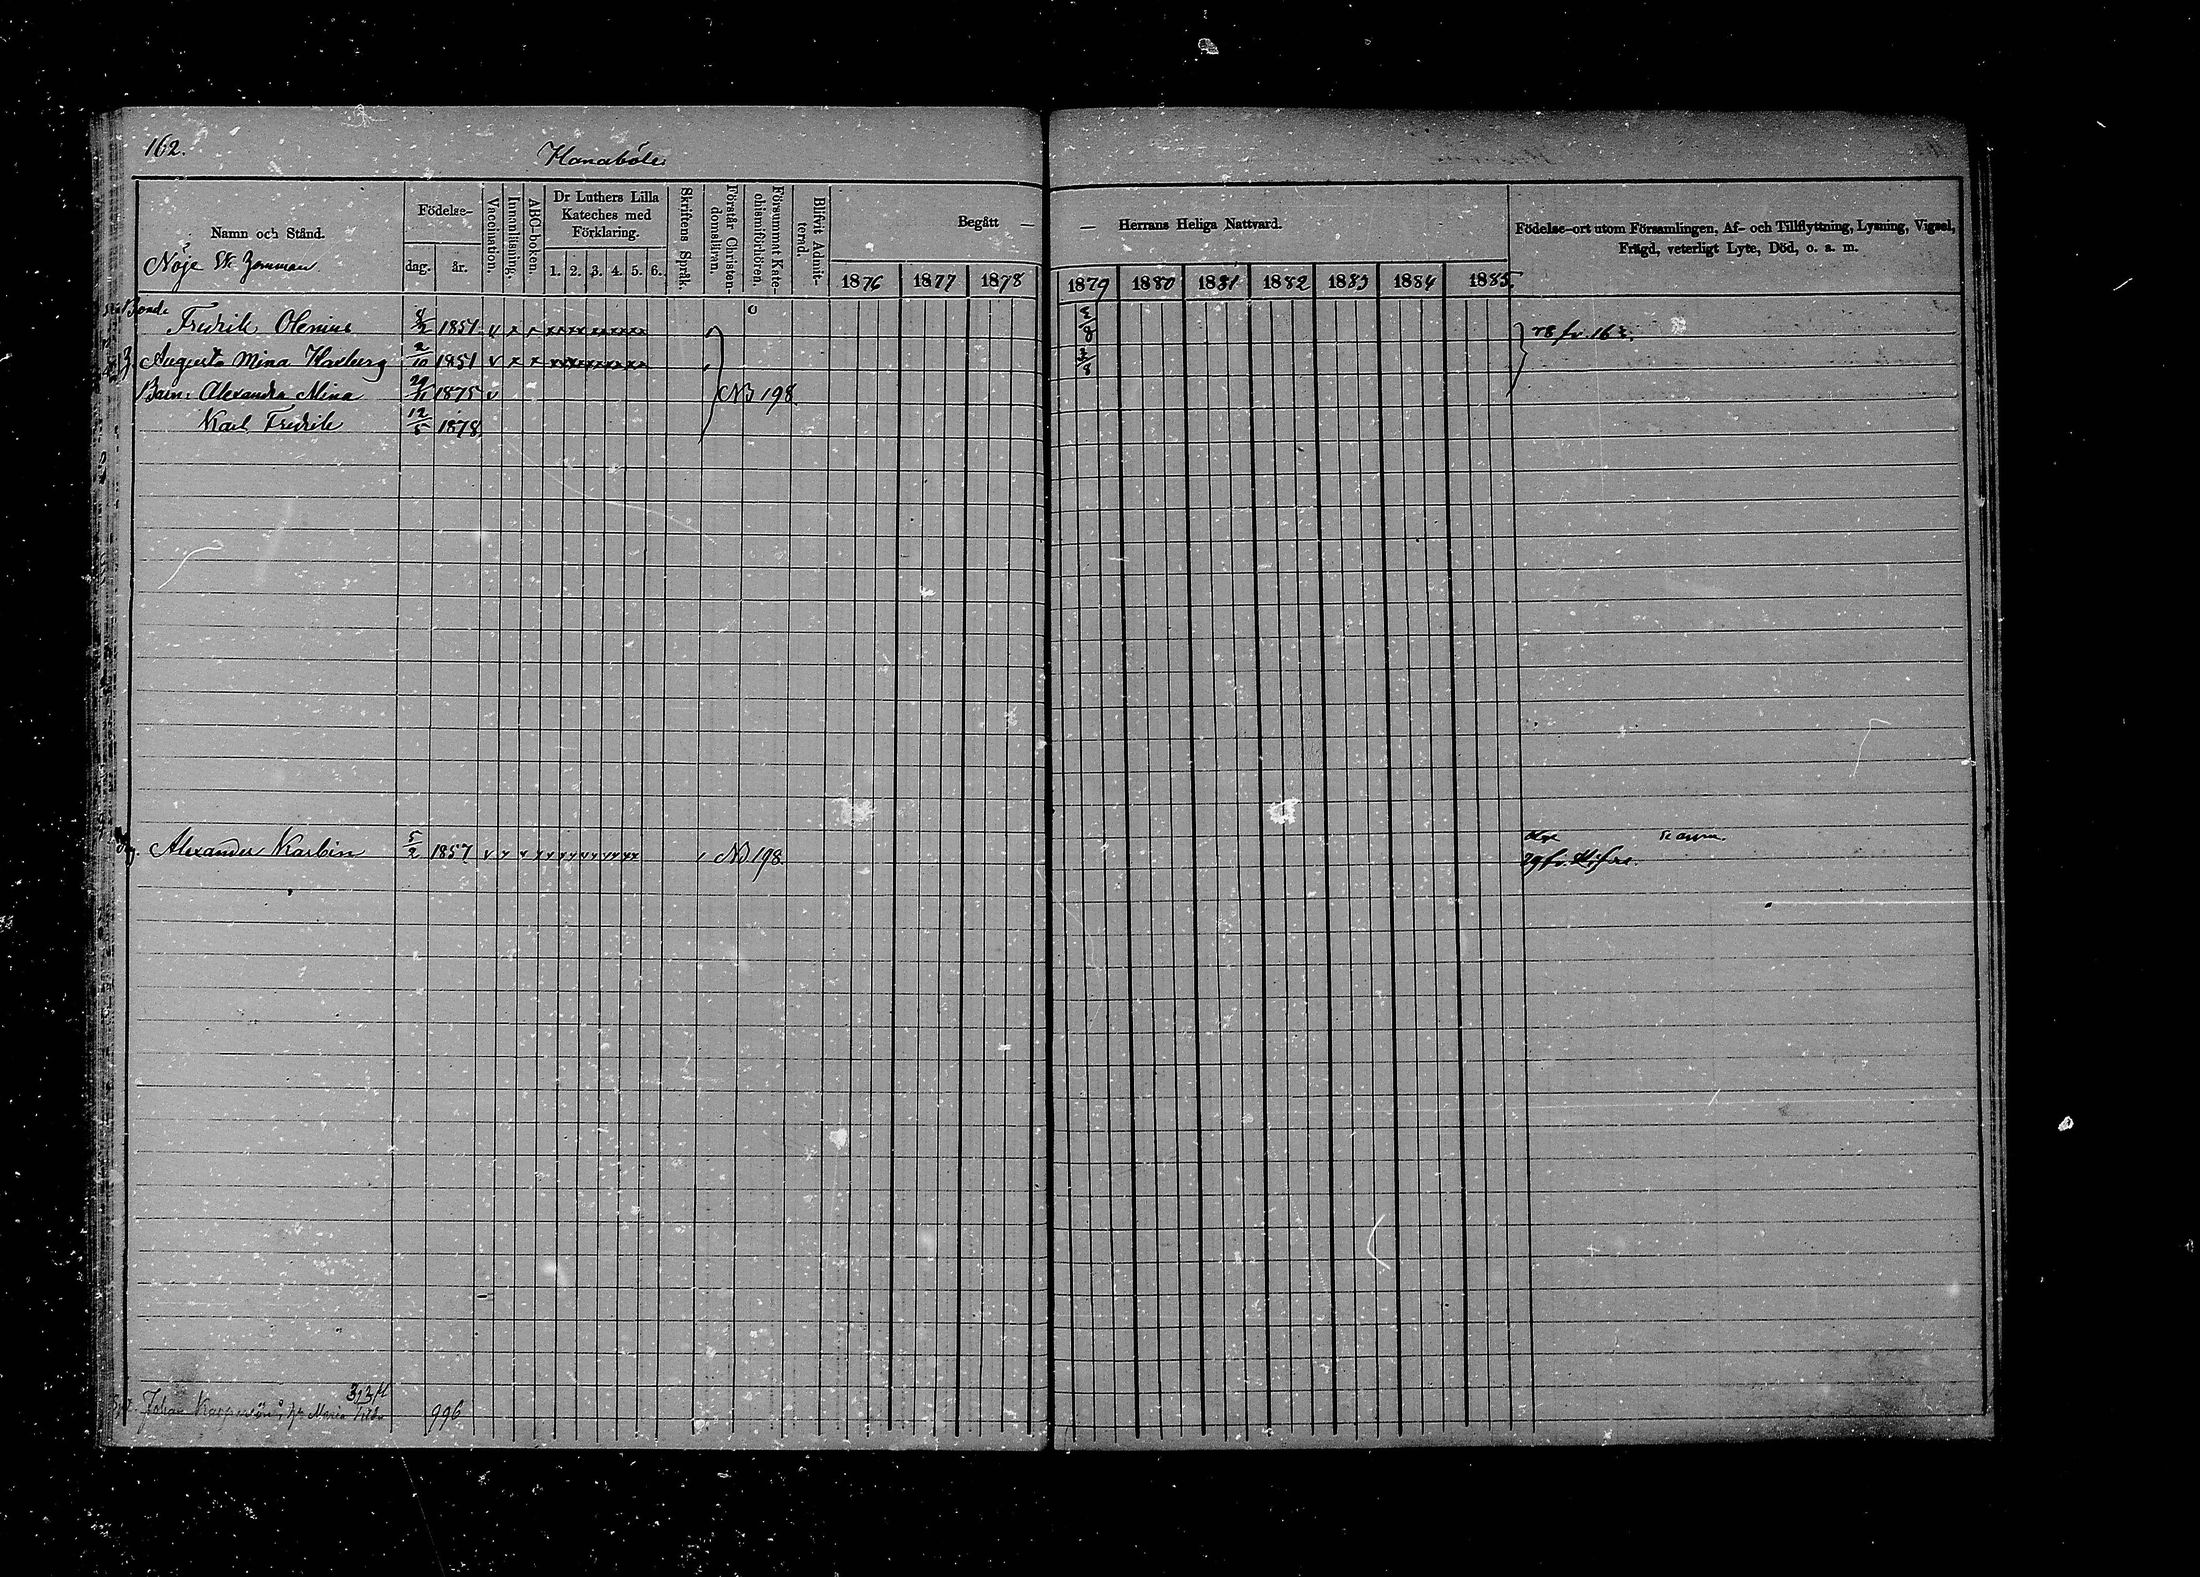 162.
Hanaböle
Namn och Stånd.
Födelse-
dag. år.
Vaccination.
Innanläsning.
ABC-boken.
Dr Luthers Lilla Kateches med Förklaring.
1. 2. 3. 4. 5. 6.
Skriftens Språk.
Förstår Christendomsläran.
Försummat Katechismiförhören.
Blifvit Admitterad.
Begått — — Herrans Heliga Nattvard.
1876 1877 1878 1879 1880 1881 1882 1883 1884 1885
Födelse-ort utom Församlingen, Af- och Tillflyttning, Lysning, Vigsel,
Frägd, veterligt Lyte, Död, o. a. m.
Nöje
Bonde
Fredrik Olenius 1851 78 fr. 16
Augusta Mina 2/10 1851
Barn: Alexandra Mina 1875 NB 198
Karl Fredrik 12/5 1878
Alexander Karbin 5/2 1857 NB 198
Johan Maria 996